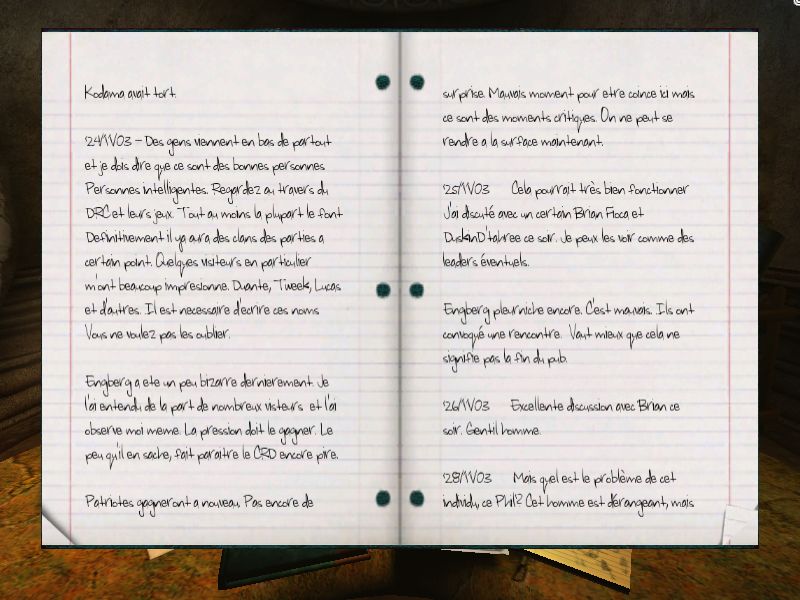 Kodama avait tort.
24/IV03 - Des gens viennent en bas de partout
et je dois dire que ce sont des bonnes personnes
Personnes intelligentes. Regardez au travers du
DRC et leurs jeux. Tout au moins la plupart le font
Definitivement il ya aura des clans des parties a
certain point. Quelques visiteurs en particulier
m'ont beaucoup impresionne. Duante, Tweek, Lucas
et d'autres. Il est necessaire d'ecrire ces noms
Vous ne voulez pas les oublier.
Engberg a ete un peu bizarre dernierement. Je
l'ai entendu de la part de nombreux visteurs et l'ai
observe moi meme. La pression doit le gagner. Le
peu qu'il en sache, fait paraitre le CRD encore pire.
Patriotes gagneront a nouveau. Pas encore de
surprise. Mauvais moment pour etre coince ici mais
ce sont des moments critiques. On ne peut se
rendre a la surface maintenant.
25/IV03 Cela pourrait très bien fonctionner
J'ai discuté avec un certain Brian Fioca et
DuskinD'tahree ce soir. Je peux les voir comme des
leaders éventuels.
Engberg pleurniche encore. C'est mauvais. Ils ont
convoqué une rencontre. Vaut mieux que cela ne
signifie pas la fin du pub.
26/IV03 Excellente discussion avec Brian ce
soir. Gentil homme.
28/IV03 Mais quel est le problème de cet
individu, ce Phil? Cet homme est dérangeant, mais